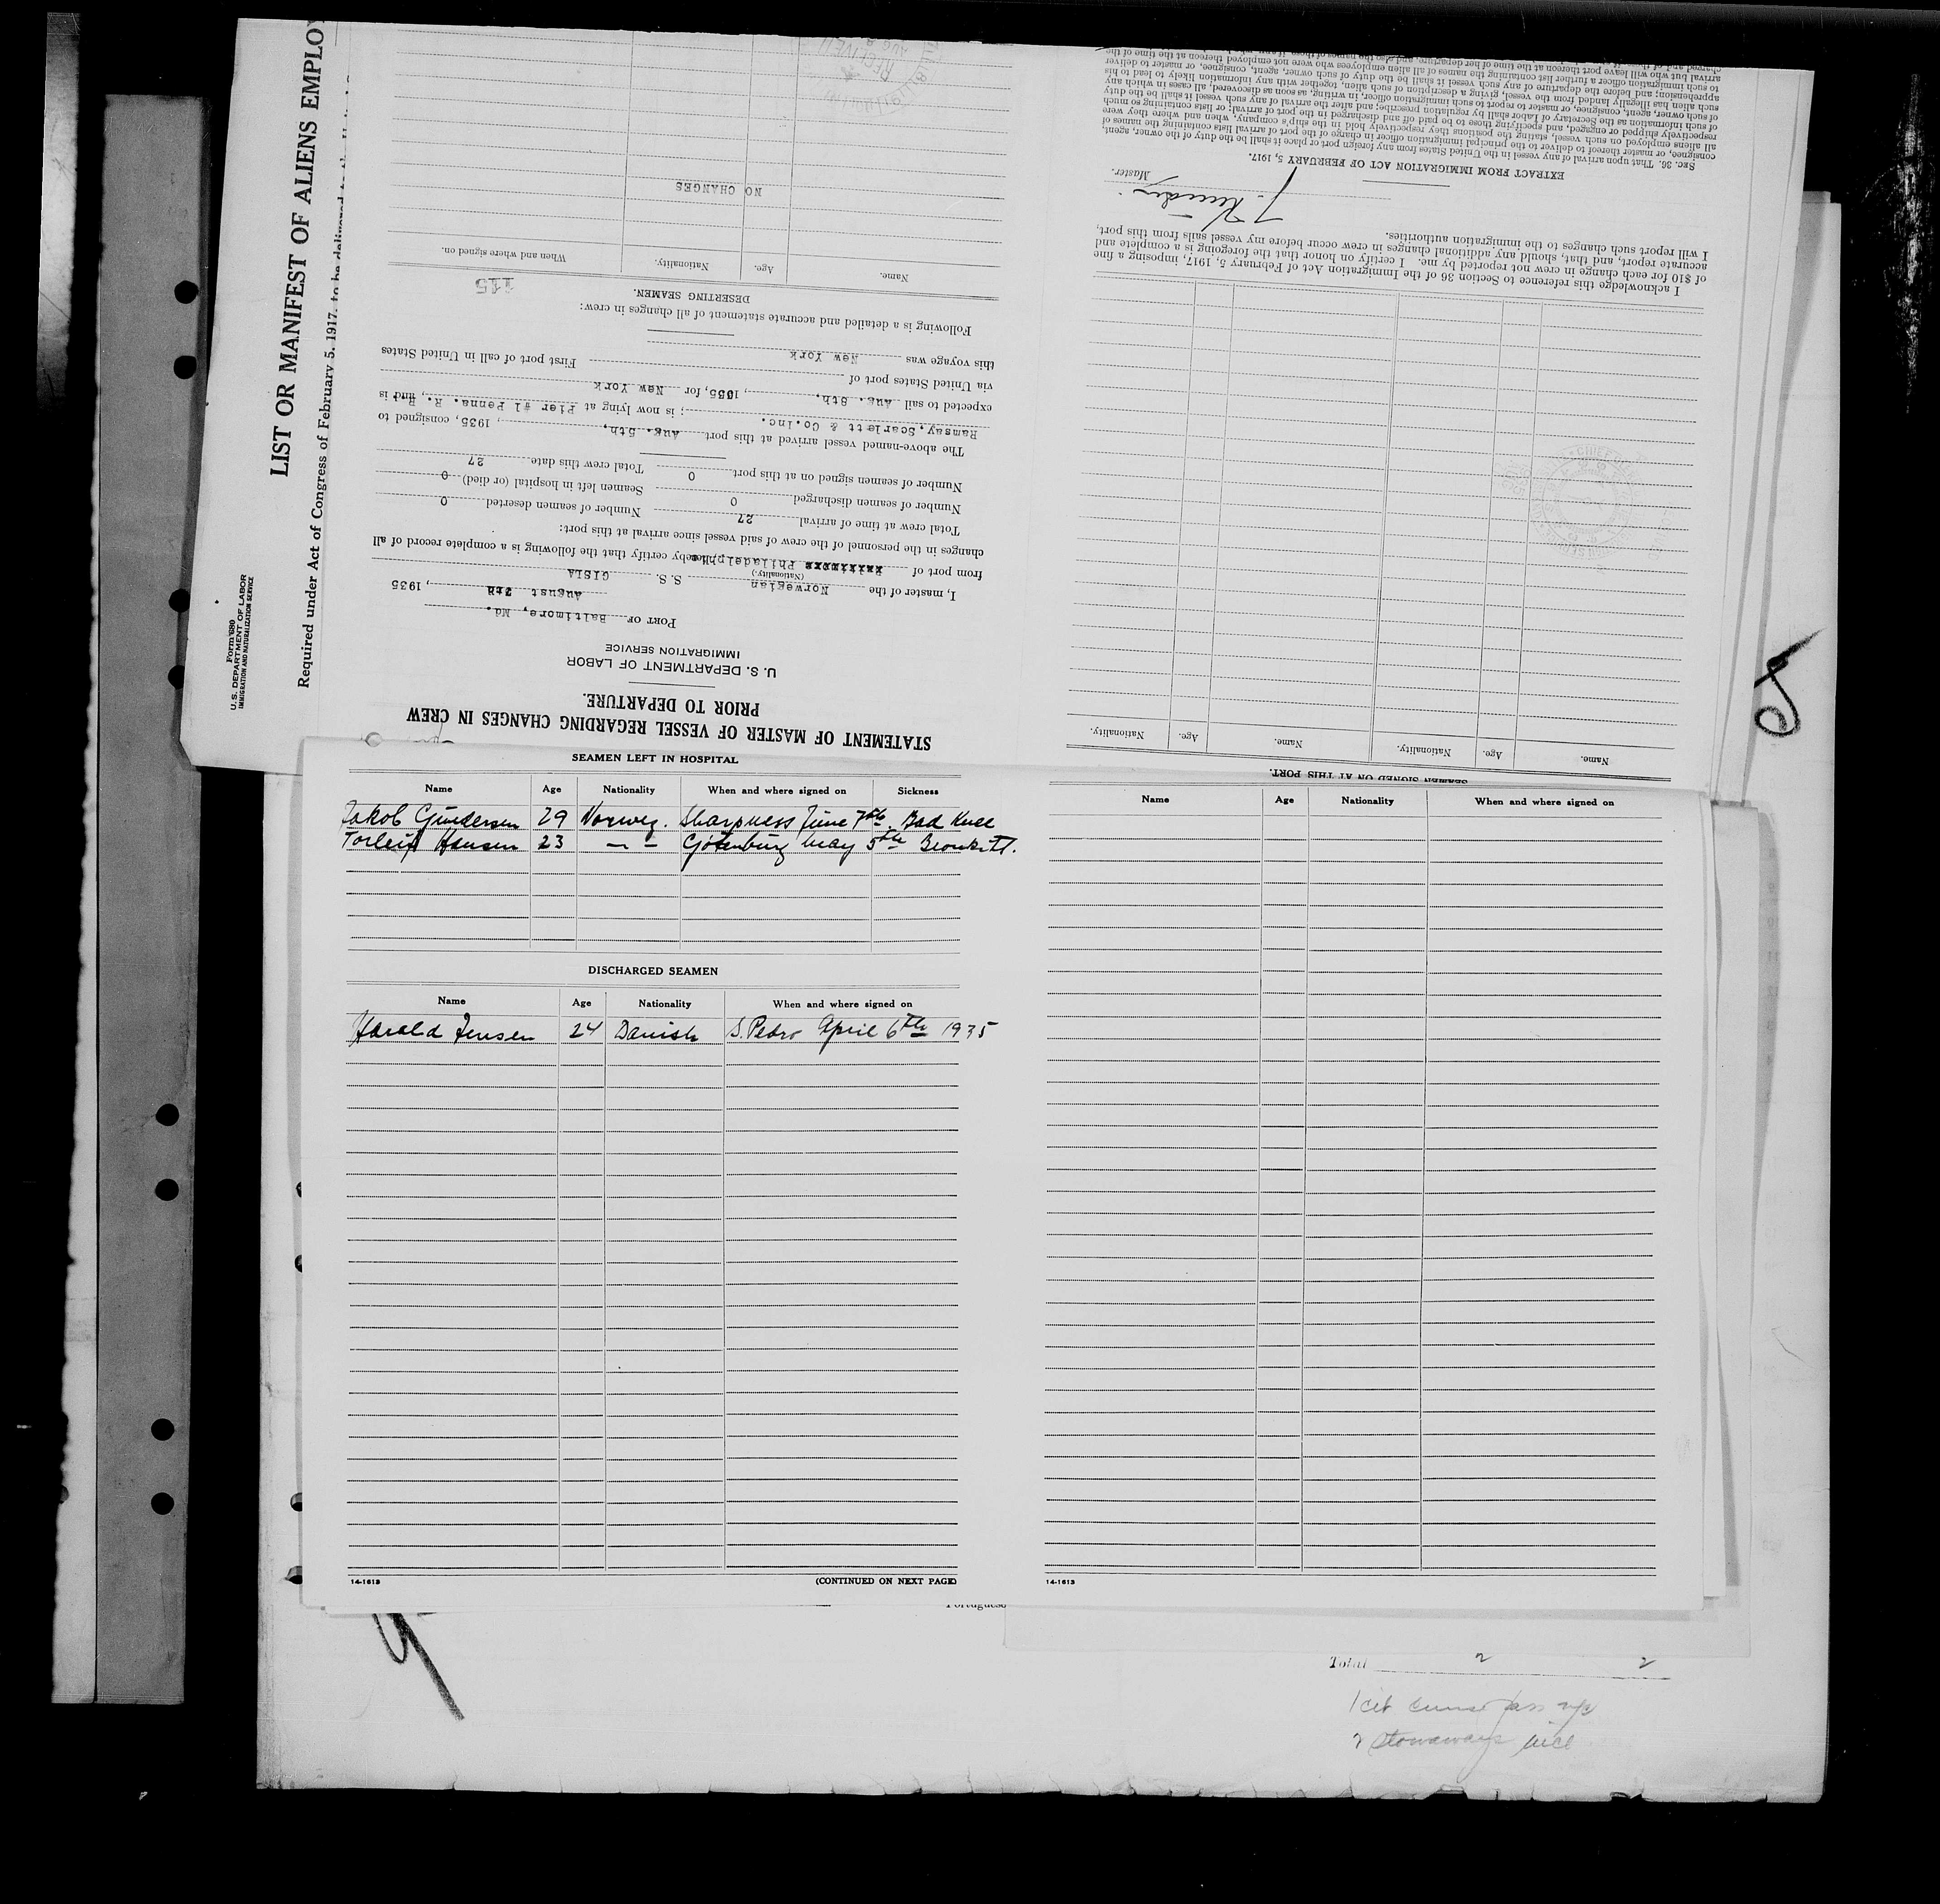 LIST OR MANIFEST OF ALIENS EMPLOY
Required under Act of Congress of February 5, 1917, to be delivered to the
Form 680
U. S. DEPARTMENT OF LABOR
IMMIGRATION AND NATURALIZATION SERVICE
STATEMENT OF MASTER OF VESSEL REGARDING CHANGES IN CREW
PRIOR TO DEPARTURE.
U. S. DEPARTMENT OF LABOR
IMMIGRATION SERVICE
PORT OF Baltimore, Md.
August 7th, 1935
I, master of the Norwegian S. S. GISLA
(Nationality.)
from port of Philadelphia hereby certify that the following is a complete record of all
changes in the personnel of the crew of said vessel since arrival at this port:
Total crew at time of arrival 27 Number of seamen deserted 0
Number of seamen discharged 0 Seamen left in hospital (or died) 0
Number of seamen signed on at this port 0 Total crew this date 27
The above-named vessel arrived at this port Aug. 5th, 1935, consigned to
Ramsay, Scarlett & Co. Inc. ; is now lying at Pier #1 Penna. R. R., and is
expected to sail Aug. 8th, 1935, for New York
via United States port of First port of call in United States
this voyage was New York
Following is a detailed and accurate statement of all changes in crew:
115
DESERTING SEAMEN.
Name. Age. Nationality. When and where signed on.
NO CHANGES
RECEIVED
AUG
SEAMEN SIGNED ON AT THIS PORT.
Name. Age. Nationality. Name. Age. Nationality.
I acknowledge this reference to Section 36 of the Immigration Act of February 5, 1917, imposing a fine
of $10 for each change in crew not reported by me. I certify on honor that the foregoing is a complete and
accurate report, and that, should any additional changes in crew occur before my vessel sails from this port,
I will report such changes to the immigration authorities.
Master.
EXTRACT FROM IMMIGRATION ACT OF FEBRUARY 5, 1917.
SEC. 36. That upon arrival of any vessel in the United States from any foreign port or place it shall be the duty of the owner, agent,
consignee, or master thereof to deliver to the principal immigration officer in charge of the port of arrival lists containing the names of
all aliens employed on such vessel, stating the positions they respectively hold in the ship's company, when and where they were
respectively shipped or engaged, and specifying those to be paid off and discharged in the port of arrival; or lists containing so much
of such information as the Secretary of Labor shall by regulation prescribe; and after the arrival of any such vessel it shall be the duty
of such owner, agent, consignee, or master to report to such immigration officer, in writing, as soon as discovered, all cases in which any
such alien has illegally landed from the vessel, giving a description of such alien, together with any information likely to lead to his
apprehension; and before the departure of any such vessel it shall be the duty of such owner, agent, consignee, or master to deliver
to such immigration officer a further list containing the names of all alien employees who were not employed thereon at the time of the
arrival but who will leave port thereon at the time of her departure, and also the names of those
SEAMEN LEFT IN HOSPITAL
Name Age Nationality When and where signed on Sickness
Jakob Gundersen 29 Norweg. Sharpness June 7th. Bad Knee
Torleif Hansen 23 — " — Götenburg May 5th
DISCHARGED SEAMEN
Name Age Nationality When and where signed on
Harald Jensen 24 Danish S. Pedro April 6th 1935
14-1613
(CONTINUED ON NEXT PAGE)
Name Age Nationality When and where signed on
14-1613
Portuguese
Total 2 2
2 stowaways